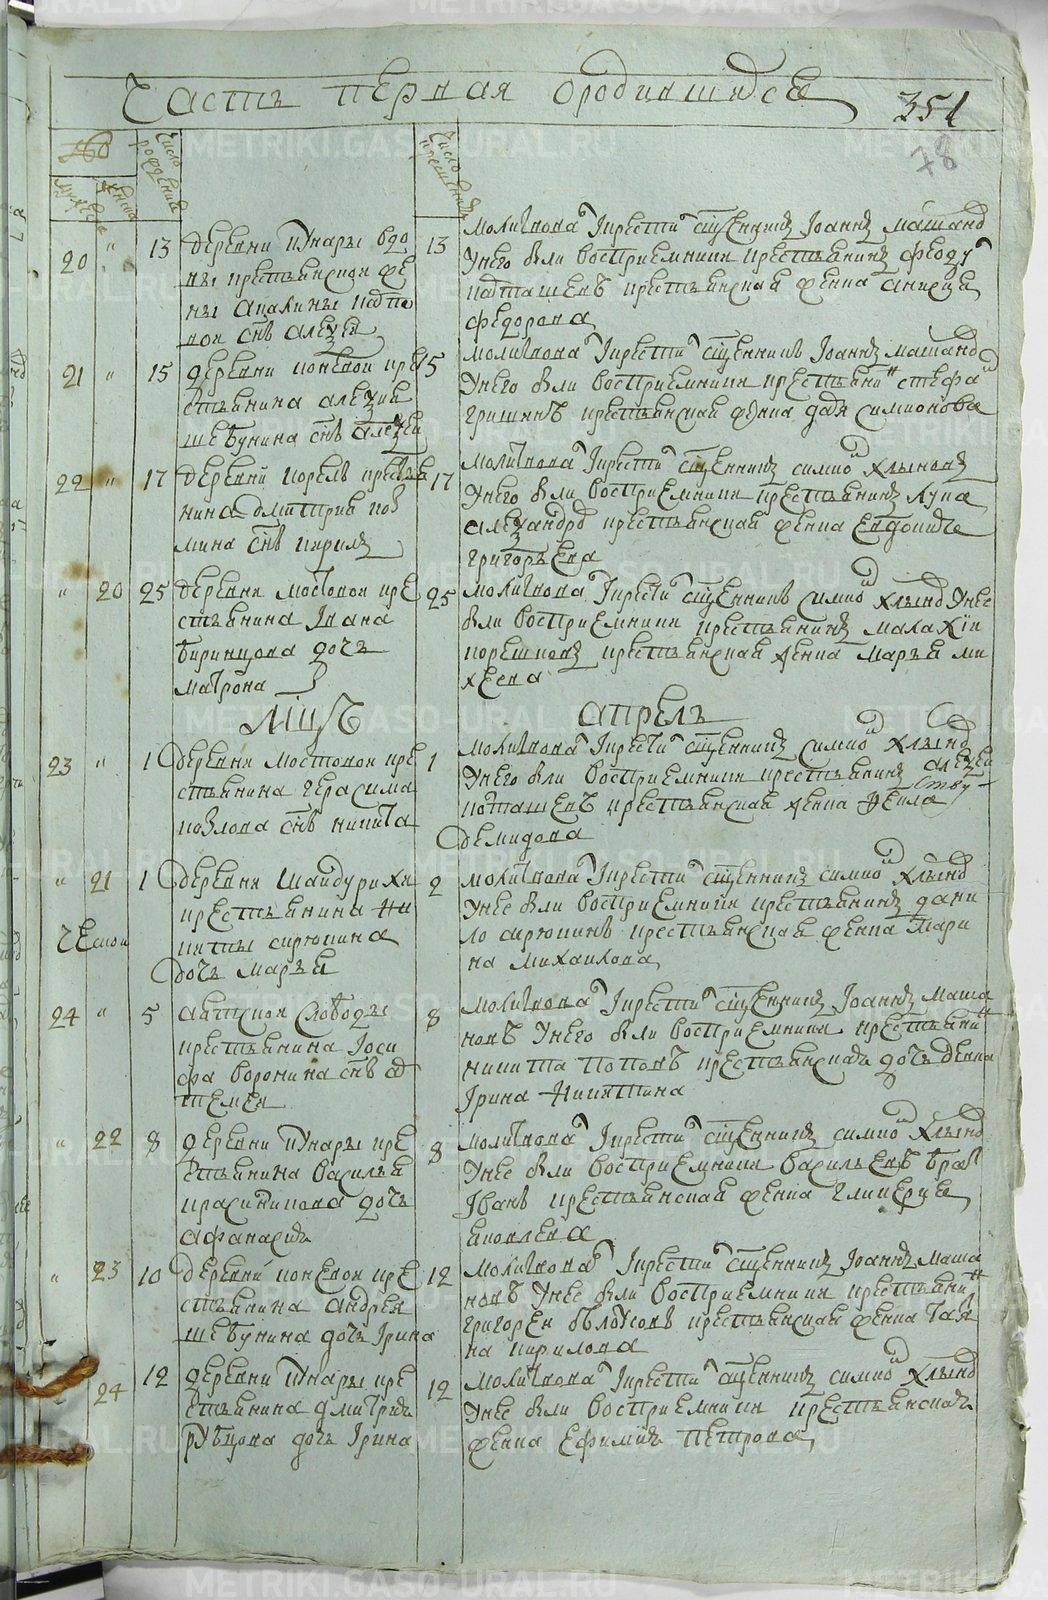 Часть первая ородившихся
351
78
число рождения
число крещения
мужеска
женска
20 " 13 деревни кунары вдо
вы крестьянской же
ны акилины подко
вой снъ алеѯей
13 молитвовал и крестил священникъ Иоаннъ машанов
у него были восприемники крестьянинъ феодул
поташевъ крестьянская женка анисия
федорова
21 " 15 деревни коневой кре
стьянина алеѯия
шебунина снъ алеѯей
15 молитвовал и крестил священникъ Иоаннъ машанов
у него были восприемники крестьянин стефан
гришинъ крестьянская женка дарья симионова
22 " 17 деревни корелы крестья
нина дмитрия коз
мина снъ кирилъ
17 молитвовал и крестил священникъ симион хлынов
у него были восприемники крестьянинъ лука
алеѯандров крестьянская женка евдокия
григорьева
" 20 25 деревни мостовой кре
стьянина Ивана
биринцова дочь
матрона
25 молитвовал и крестил священникъ симион хлынов у нее
были восприемники крестьянинъ малахий
корешковъ крестьянская женка марья ми
хеева
Мцъ апрель
23 " 1 деревни мостовой кре
стьянина герасима
козлова снъ никита
1 молитвовал и крестил священникъ симион хлынов
у него были восприемники крестьянинъ алеѯей
поташевъ крестьянская женка фекла
демидова
" 21 1 деревни шайдурихи
крестьянина ни
киты сирюкина
дочь марья
2 молитвовал и крестил священникъ симион хлынов
у нее были восприемники крестьянинъ дани
ло сирюкинъ крестьянская женка мари
на михайлова
24 " 5 аятской слободы
крестьянина Иоси
фа воронина снъ ар
темей
8 молитвовал и крестил священникъ Иоаннъ маша
новъ у него были восприемники крестьянин
никита поповъ крестьянская дочь девка
Ирина никитина
" 22 8 деревни кунары кре
стьянина василья
дочь
афанасия
8 молитвовал и крестил священникъ симион хлынов
у нее были восприемники васильевъ брат
Иванъ крестьянская женка гликерия
яковлева
" 23 10 деревни коневой кре
стьянина андрея
шебунина дочь Ирина
12 молитвовал и крестил священникъ Иоаннъ маша
новъ у нее были восприемники крестьянин
григорей белоусовъ крестьянская женка татья
на кирилова
24 12 деревни кунары кре
стьянина дмитрия
рубцова дочь Ирина
12 молитвовал и крестил священникъ симион хлынов
у нее были восприемники крестьянская
женка ефимия петрова